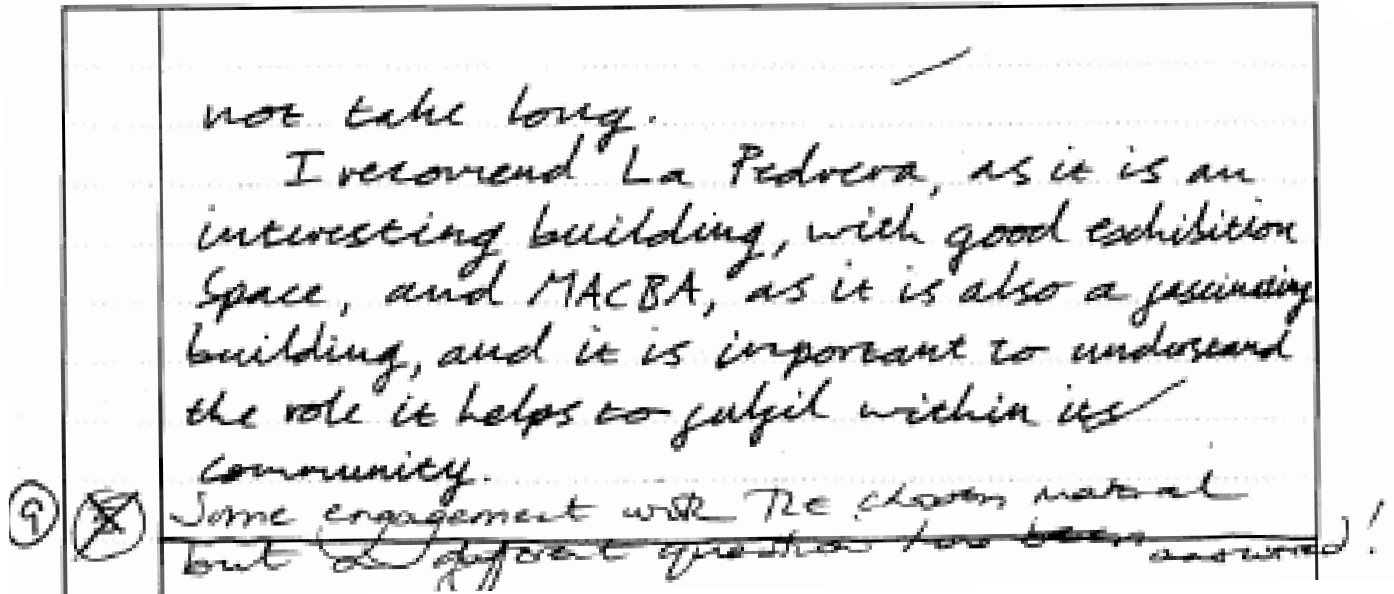 not take long.
I recomend La Pedrera, as it is an
interesting building, with good exhibition
Space, and MACBA, as it is also a fascinating
building, and it is important to understand
the role it helps to fulfil within its
community.
9 Some engagement with the chosen material
but a different question has been answered!